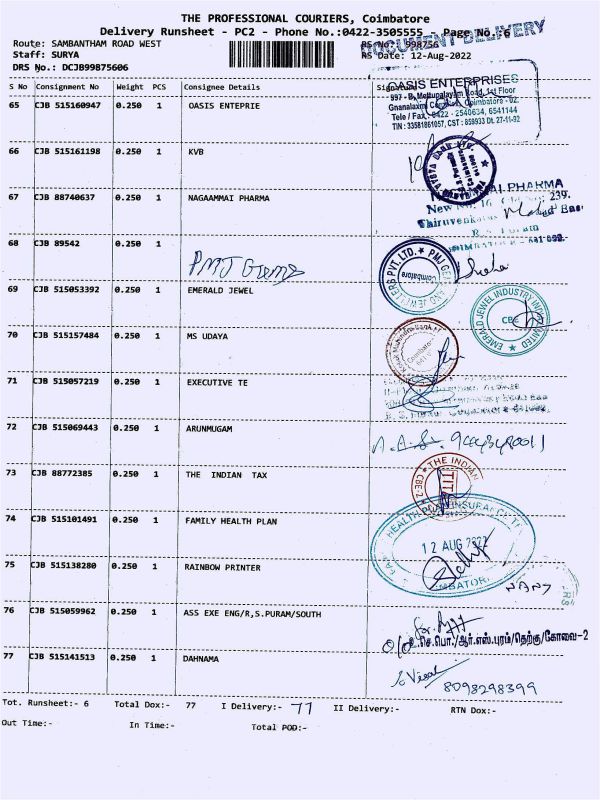 THE PROFESSIONAL COURIERS, Coimbatore
Delivery Runsheet - PC2 - Phone No.:0422-3505555 - Page No. 6
DOCUMENT DELIVERY
Route: SAMBANTHAM ROAD WEST RS No: 998756
Staff: SURYA RS Date: 12-Aug-2022
DRS No.: DCJB99B75606
S No Consignment No Weight PCS Consignee Details Signature
65 CJB 515160947 0.250 1 OASIS ENTEPRIE
OASIS ENTERPRISES
997 - B, Mettupalayam Road, 1st Floor
Gnanalaxmi Complex, Coimbatore - 02.
Tele / Fax : 0422 - 2540634, 6541144
TIN : 33581861057, CST : 859933 Dt. 27-11-92
66 CJB 515161198 0.250 1 KVB
67 CJB 88740637 0.250 1 NAGAAMMAI PHARMA
PHARMA
239.
Thiruvenkatas
68 CJB 89542 0.250 1 PMJ Gems
PMJ GEMS AND JEWELLERS PVT. LTD.
Coimbatore
69 CJB 515053392 0.250 1 EMERALD JEWEL
EMERALD JEWEL INDUSTRY INDIA LIMITED
70 CJB 515157484 0.250 1 MS UDAYA
Kotak Mahindra Bank
Coimbatore
71 CJB 515057219 0.250 1 EXECUTIVE TE
72 CJB 515069443 0.250 1 ARUNMUGAM
73 CJB 88772385 0.250 1 THE INDIAN TAX
THE INDIAN
CBE-2
74 CJB 515101491 0.250 1 FAMILY HEALTH PLAN
HEALTH PLAN INSURANCE
12 AUG 2022
75 CJB 515138280 0.250 1 RAINBOW PRINTER
76 CJB 515059962 0.250 1 ASS EXE ENG/R,S.PURAM/SOUTH
உ.செ.பொ./ஆர்.எஸ்.புரம்/தெற்கு/கோவை-2
77 CJB 515141513 0.250 1 DAHNAMA
8098298399
Tot. Runsheet:- 6 Total Dox:- 77 I Delivery:- 77 II Delivery:- RTN Dox:-
Out Time:- In Time:- Total POD:-